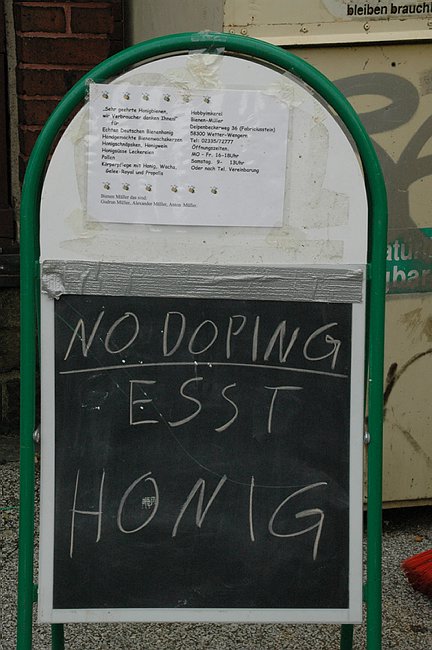 bleiben brauch
„Sehr geehrte Honigbienen,
wir Verbraucher danken Ihnen!"
für
Echten Deutschen Bienenhonig
Handgemachte Bienenwachskerzen
Honigschnäpsken, Honigwein
Honigsüsse Leckereien
Pollen
Körperpflege mit Honig, Wachs,
Gelee-Royal und Propolis
Hobbyimkerei
Bienen-Müller
Deipenbeckerweg 36 (Fabriciusstein)
58300 Wetter-Wengern
Tel: 02335/72777
Öffnungszeiten:
MO - Fr. 16-18Uhr
Samstag. 9- 13Uhr
Oder nach Tel. Vereinbarung
Bienen Müller das sind:
Gudrun Müller, Alexander Müller, Anton Müller
NO DOPING
ESST
HONIG